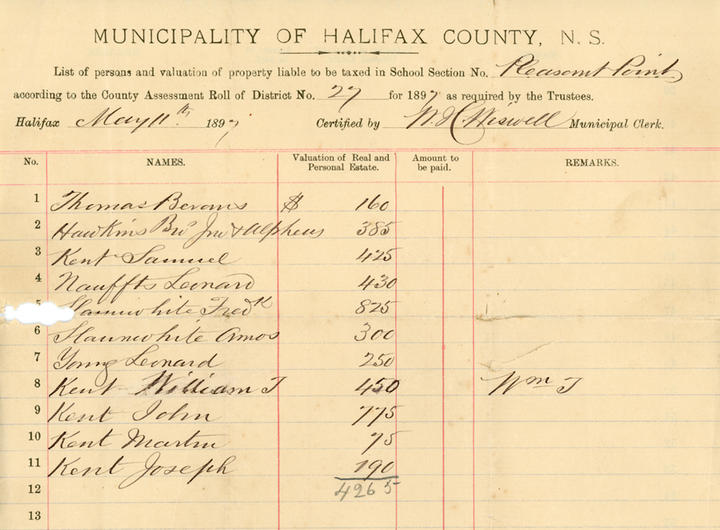 MUNICIPALITY OF HALIFAX COUNTY, N. S.
List of persons and valuation of property liable to be taxed in School Section No. Pleasant Point
according to the County Assessment Roll of District No. 27 for 1897 as required by the Trustees.
Halifax May 11th 1897 Certified by W. H. Wiswell Municipal Clerk.
No. NAMES. Valuation of Real and Personal Estate. Amount to be paid. REMARKS.
1 Thomas Bevans $ 160
2 Hawkins Bros Jno & Alpheus 385
3 Kent Samuel 425
4 Nauffts Leonard 430
5 Slaunwhite Fredk 825
6 Slaunwhite Amos 300
7 Young Leonard 250
8 Kent William J 450 Wm J
9 Kent John 775
10 Kent Martin 75
11 Kent Joseph 190
12 4265
13